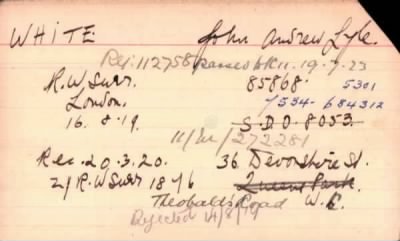 WHITE John Andrew Lyle.
Rej: 112758 passed 19.7.23
R.W. Surr. 85868. 5301
London. 7534-684312
16.8.19. S.D.O. 8053
272281
Rec. 20.3.20. 36 Devonshire St.
2/ R.W. Surr 18 Queens Park.
Theobalds Road W.C.
Rejected 14/8/19